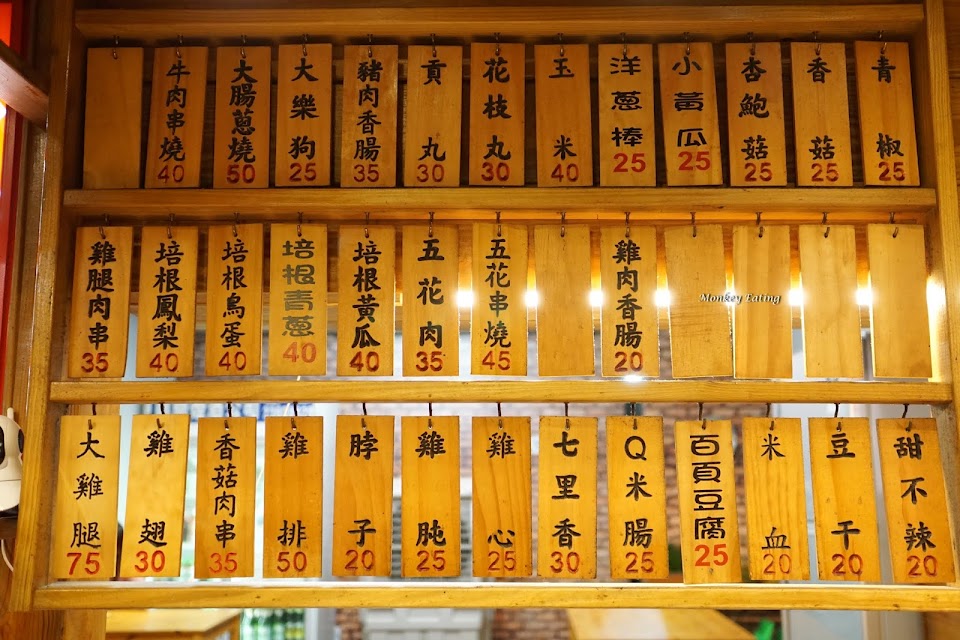 牛肉串燒 40
大腸蔥燒 50
大樂狗 25
豬肉香腸 35
貢丸 30
花枝丸 30
玉米 40
洋蔥棒 25
小黃瓜 25
杏鮑菇 25
香菇 25
青椒 25
雞腿肉串 35
培根鳳梨 40
培根鳥蛋 40
培根青蔥 40
培根黃瓜 40
五花肉 35
五花串燒 45
雞肉香腸 20
Monkey Eating
大雞腿 75
雞翅 30
香菇肉串 35
雞排 50
脖子 20
雞肫 25
雞心 25
七里香 30
Q米腸 25
百頁豆腐 25
米血 20
豆干 20
甜不辣 20